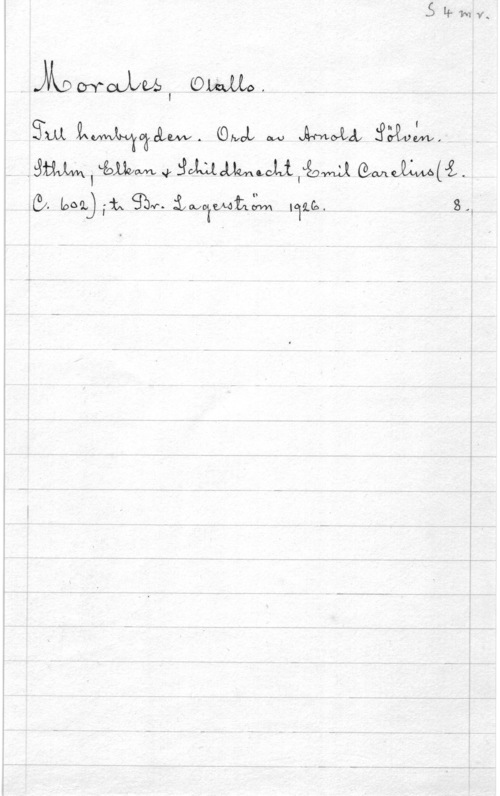 S 4 m r.
Morales, Olallo.
Till hembygden. Ord av Arnold Sölvén.
Sthlm, Elkan & Schildknecht, Emil Carelius (E.
C. 602); tr. Br. Lagerström 1926. 8.